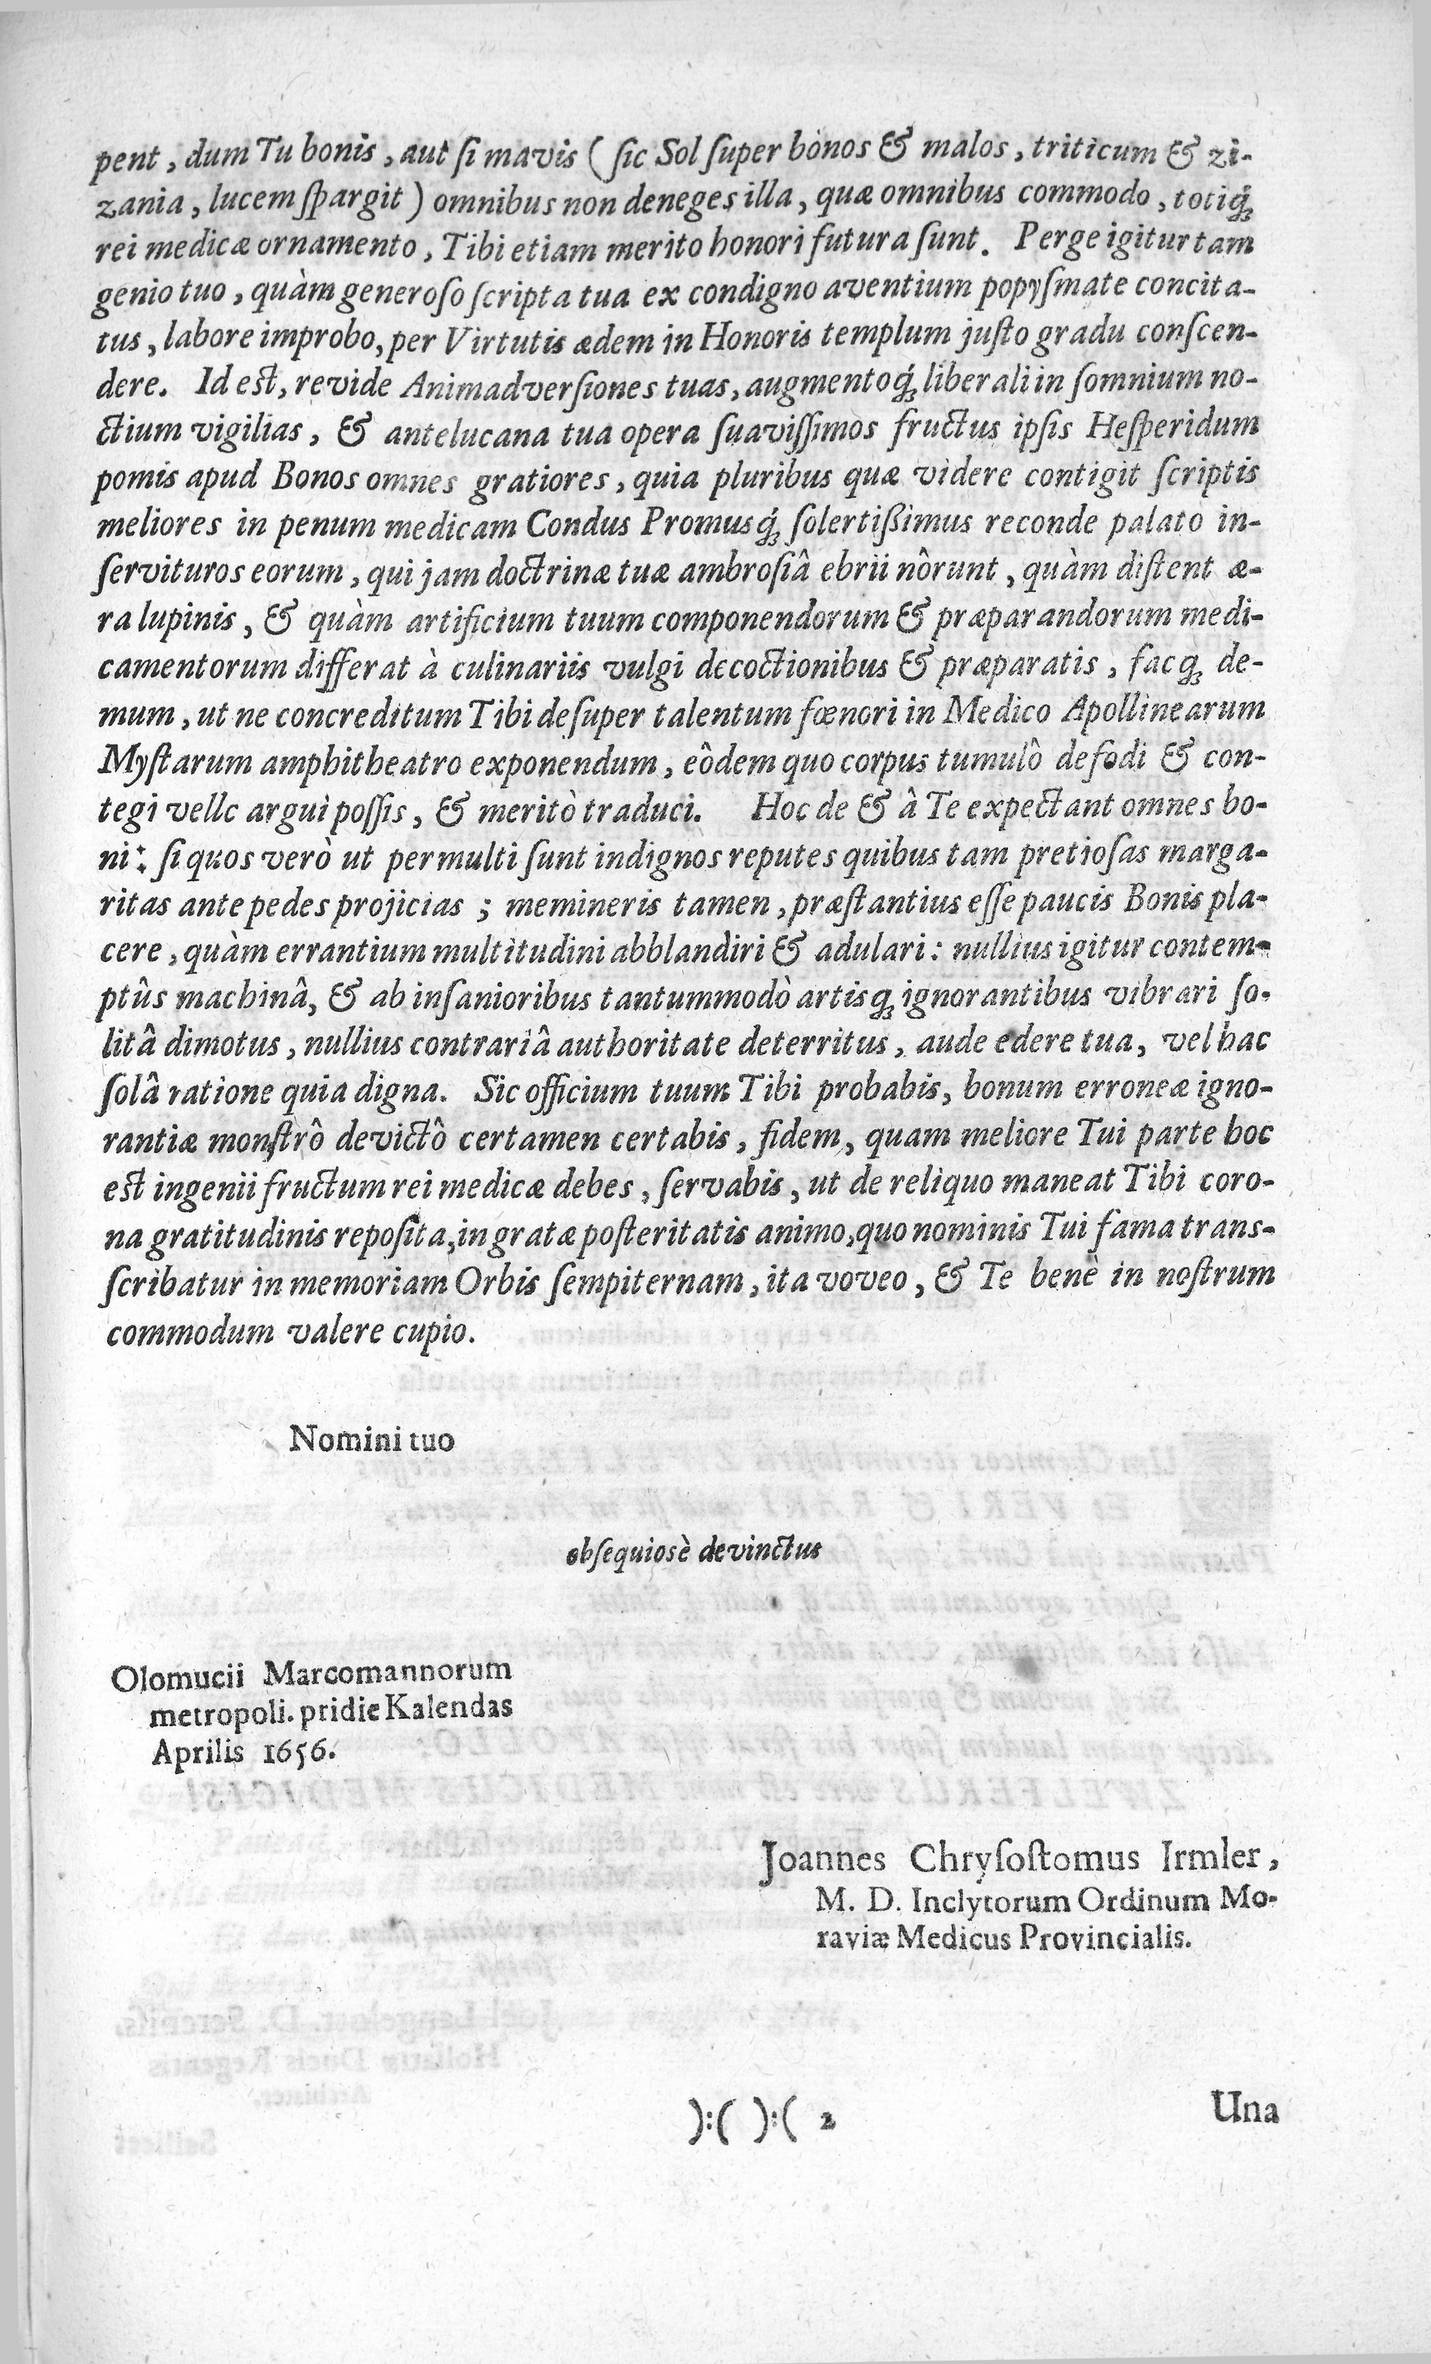 pent, dum Tu bonis, aut ſi mavis (ſic Sol ſuper bonos & malos, triticum & zi-
zania, lucem ſpargit) omnibus non deneges illa, quæ omnibus commodo, totiq́;
rei medicæ ornamento, Tibi etiam merito honori futura ſunt. Perge igitur tam
genio tuo, quàm generoſo ſcripta tua ex condigno aventium popyſmate concita-
tus, labore improbo, per Virtutis ædem in Honoris templum juſto gradu conſcen-
dere. Id eſt, revide Animadverſiones tuas, augmentoq́; liberali in ſomnium no-
ctium vigilias, & antelucana tua opera ſuaviſſimos fructus ipſis Heſperidum
pomis apud Bonos omnes gratiores, quia pluribus quæ videre contigit ſcriptis
meliores in penum medicam Condus Promusq́; ſolertißimus reconde palato in-
ſervituros eorum, qui jam doctrinæ tuæ ambroſiâ ebrii nôrunt, quàm diſtent æ-
ra lupinis, & quàm artificium tuum componendorum & præparandorum medi-
camentorum differat à culinariis vulgi decoctionibus & præparatis, facq; de-
mum, ut ne concreditum Tibi deſuper talentum fœnori in Medico Apollinearum
Myſtarum amphitheatro exponendum, eôdem quo corpus tumulô defodi & con-
tegi velle argui poſſis, & meritò traduci. Hoc de & â Te expectant omnes bo-
ni: ſi quos verò ut permulti ſunt indignos reputes quibus tam pretioſas marga-
ritas ante pedes projicias; memineris tamen, præſtantius eſſe paucis Bonis pla-
cere, quàm errantium multitudini abblandiri & adulari: nullius igitur contem-
ptûs machinâ, & ab inſanioribus tantummodò artisq; ignorantibus vibrari ſo-
litâ dimotus, nullius contrariâ authoritate deterritus, aude edere tua, vel hac
ſolâ ratione quia digna. Sic officium tuum Tibi probabis, bonum erroneæ igno-
rantiæ monſtrô devictô certamen certabis, fidem, quam meliore Tui parte hoc
eſt ingenii fructum rei medicæ debes, ſervabis, ut de reliquo maneat Tibi coro-
na gratitudinis repoſita, in gratæ poſteritatis animo, quo nominis Tui fama trans-
ſcribatur in memoriam Orbis ſempiternam, ita voveo, & Te benè in noſtrum
commodum valere cupio.
Nomini tuo
obſequiosè devinctus
Olomucii Marcomannorum
metropoli. pridie Kalendas
Aprilis 1656.
Joannes Chryſoſtomus Irmler,
M. D. Inclytorum Ordinum Mo-
raviæ Medicus Provincialis.
):( ):( 2
Una